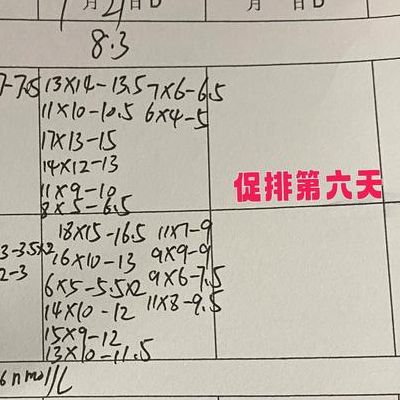 月21日D
月 日D
8.3
7-7.5
13×14-13.5 7×6-6.5
11×10-10.5 6×4-5
17×13-15
14×12-13
11×9-10
8×5-6.5
促排第六天
18×15-16.5 11×7-9
3-3.5×2 16×10-13 9×9-9
2-3 6×5-5.5×2 9×6-7.5
14×10-12 11×8-9.5
15×9-12
13×10-11.5
6nmol/L